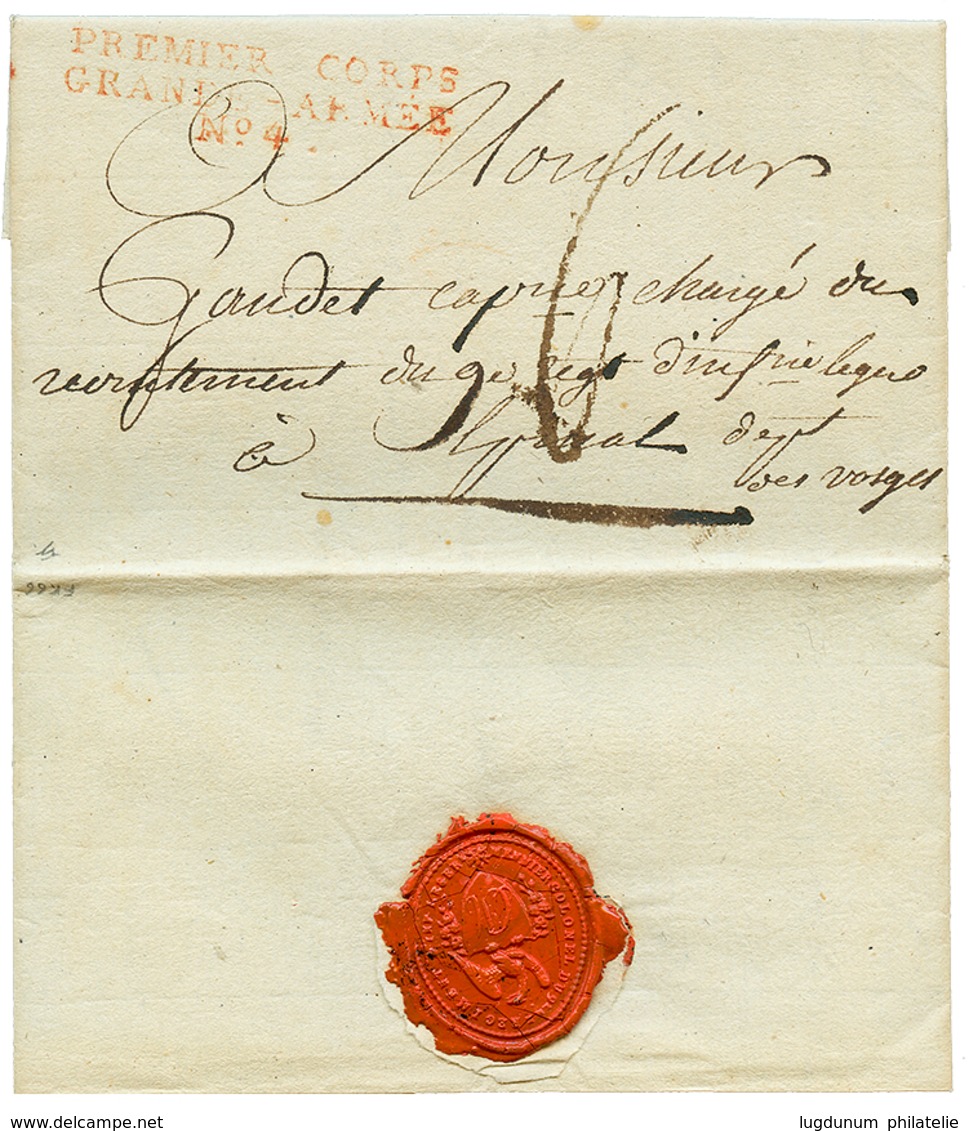 PREMIER CORPS
GRANDE-ARMÉE
Nº 4.
Monsieur
Gaudet capne chargé du
recrutement du 9e regt d'infrie legere
à Epinal dept
des vosges
COLONEL DU 9
lugdunum philatelie